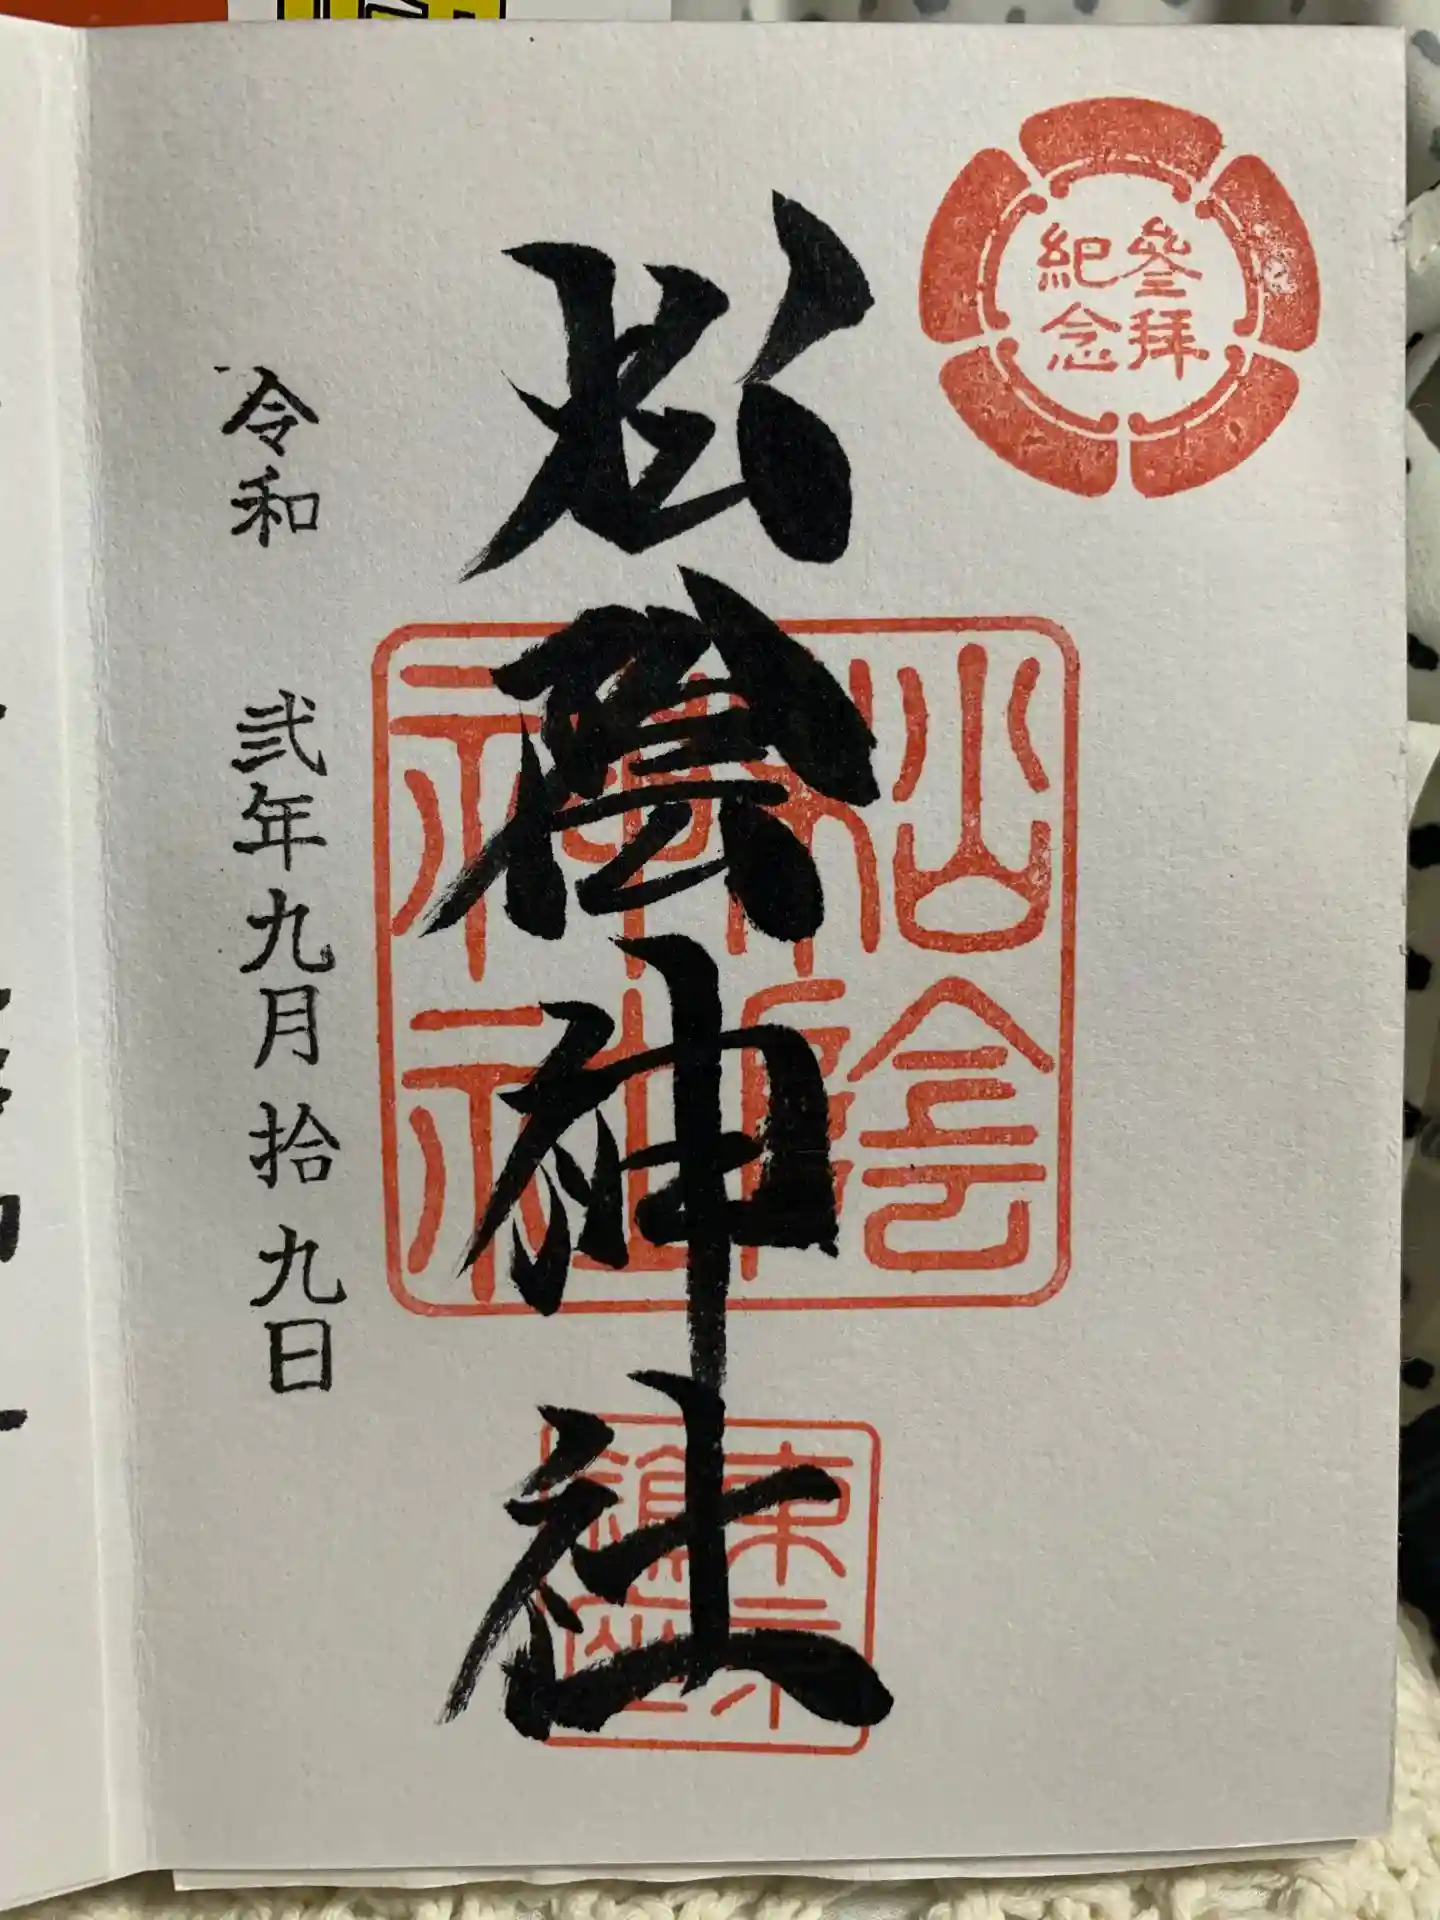 参拝
紀念
松陰神社
松陰
神社
令和 弐年九月拾九日